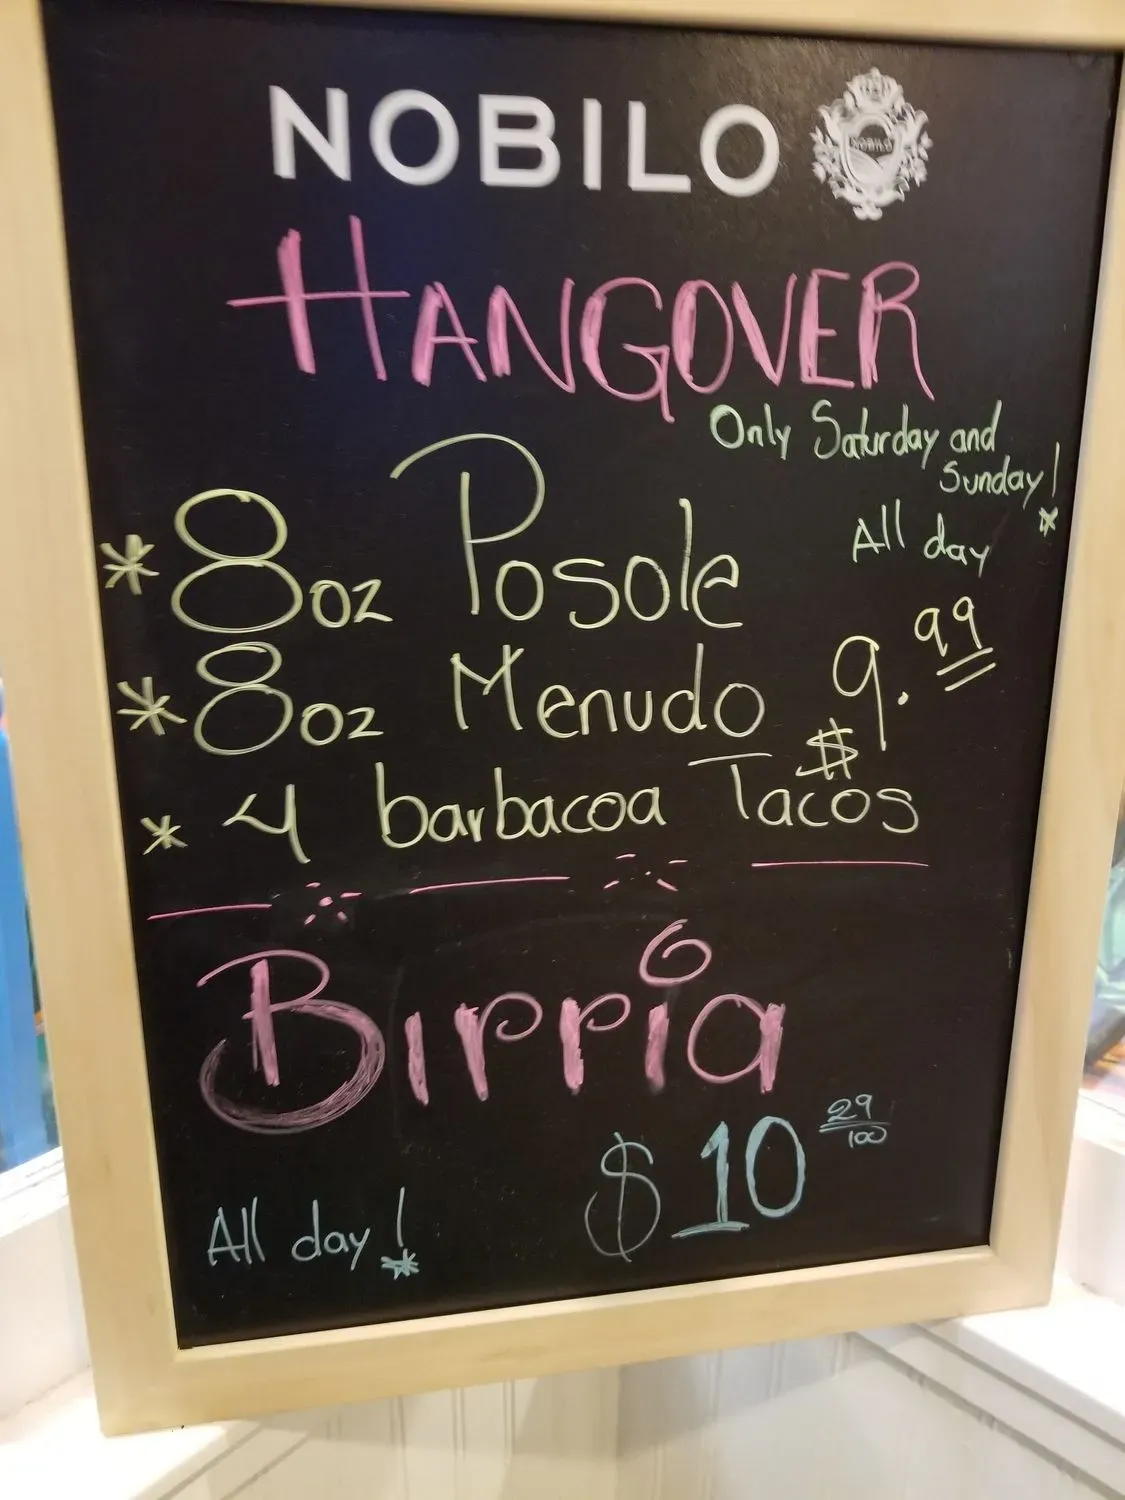 NOBILO
NOBILO
HANGOVER
Only Saturday and
Sunday!
All day
*8oz Posole
*8oz Menudo
$9.99
* 4 barbacoa Tacos
Birria
$10 29/100
All day!